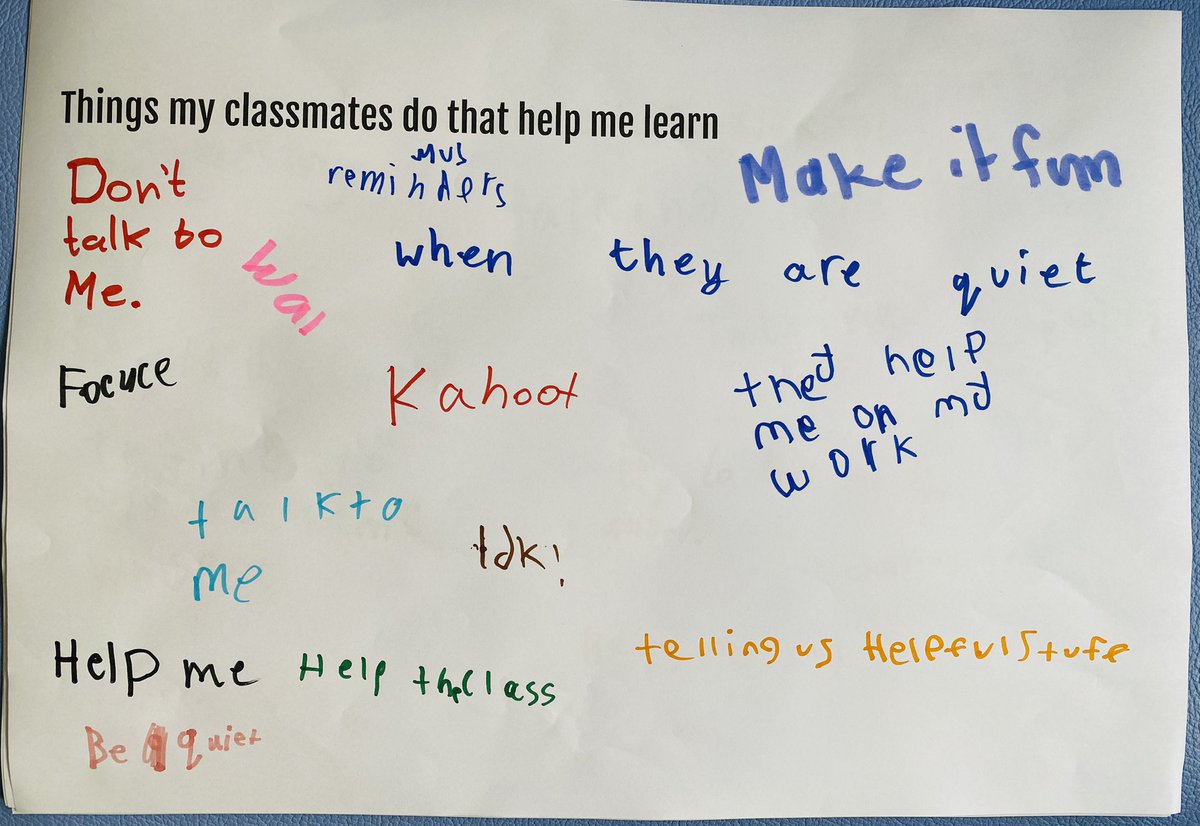 Things my classmates do that help me learn
Don't
talk to
Me.
reminders
Make it fun
when they are quiet
Wal
Focuce
Kahoot
they help
me on my
work
talk to
me
Help me
Help the class
telling us Helpful Stufe
Be quiet